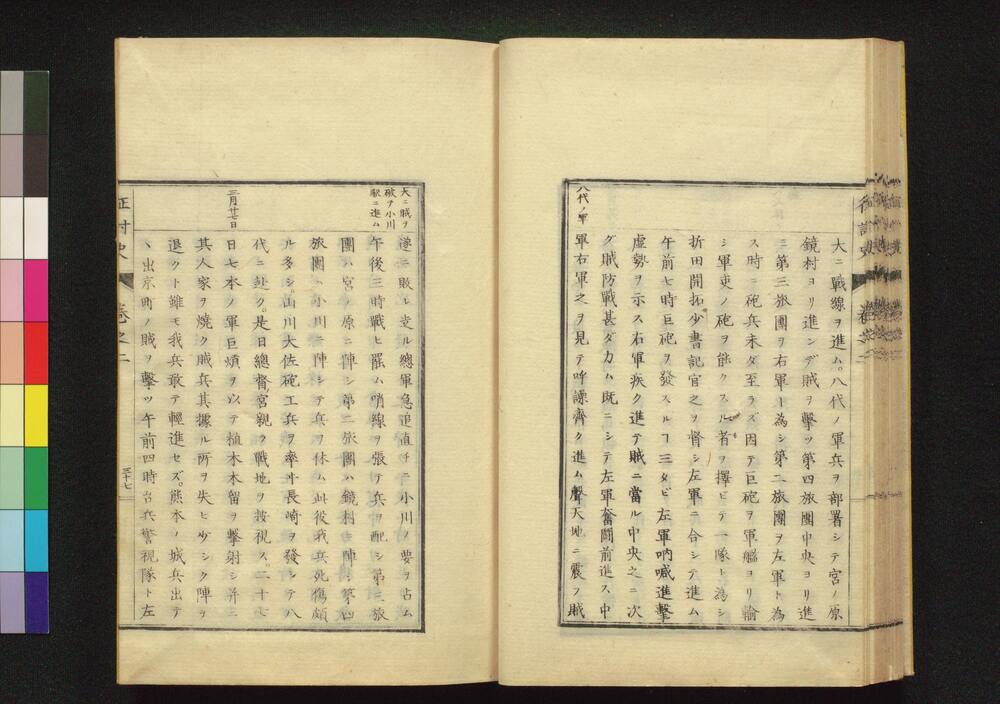 大ニ戰線ヲ進ム。八代ノ軍兵ヲ部署シテ宮ノ原
鏡村ヨリ進ンデ賊ヲ擊ッ第四旅團中央ヨリ進
ミ第三旅團ヲ右軍ト為シ第二旅團ヲ左軍ト為
ス時ニ砲兵未ダ至ラズ因テ巨砲ヲ軍艦ヨリ輸
シ軍吏ノ砲ヲ能クスル者ヲ擇ビテ一隊ト為シ
折田開拓少書記官之ヲ督シ左軍ニ合シテ進ム
午前七時巨砲ヲ發スルヿ三タビ左軍吶喊進擊
虛勢ヲ示ス右軍疾ク進テ賊ニ當ル中央之ニ次
グ賊防戰甚ダ力ム既ニシテ左軍奮鬪前進ス中
八代ノ軍
軍右軍之ヲ見テ呼譟齊ク進ム聲天地ニ震フ賊
大ニ賊ヲ
破ヲ小川
驛ニ進ム
遂ニ敗レ走ル總軍急追直チニ小川ノ要ヲ占ム
午後三時戰ヒ罷ム哨線ヲ張テ兵ヲ配シ第三旅
團ハ宮ノ原ニ陣シ第二旅團ハ鏡村ニ陣シ第四
旅團ハ小川ニ陣シテ兵ヲ休ム此役我兵死傷頗
ル多シ。山川大佐砲工兵ヲ率ヰ長崎ヲ發シテ八
代ニ赴ク。是日總督宮親ク戰地ヲ按視ス。二十七
三月廿七日
日七本ノ軍巨煩ヲ以テ植木木留ヲ擊射シ併ニ
其人家ヲ燒ク賊兵其據ル所ヲ失ヒ少シク陣ヲ
退クト雖モ我兵敢テ輕進セズ。熊本ノ城兵出テ
、出京町ノ賊ヲ擊ッ午前四時台兵警視隊ト左
征討史
卷之二
三十七